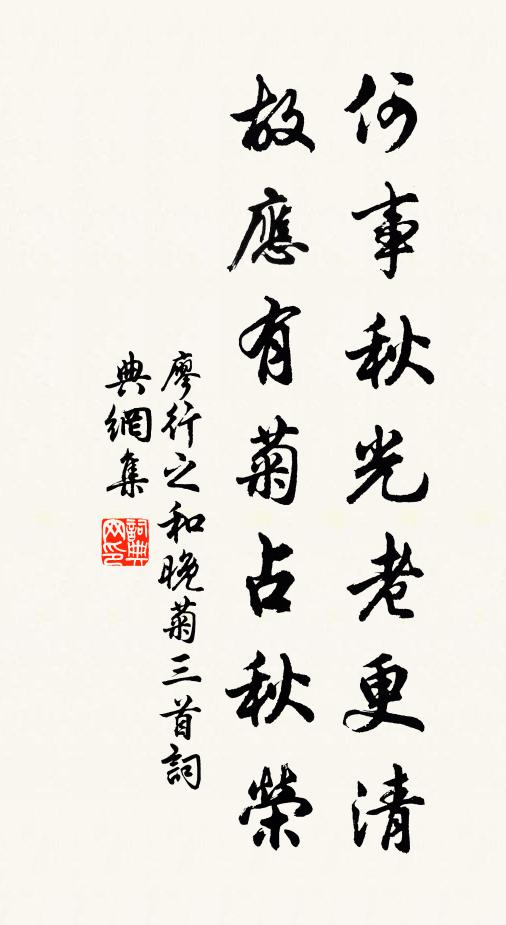 何事秋光老更清
故應有菊占秋榮
廖行之和晚菊三首詞
典網集
詞典
网印